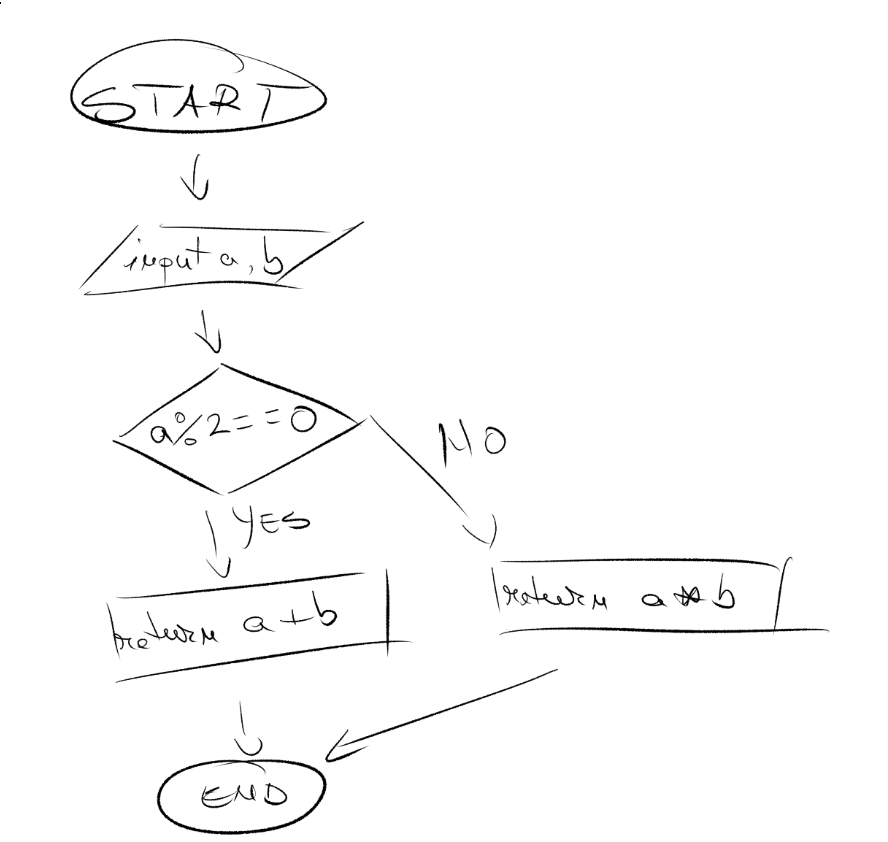 START
input a, b
a%2==0
NO
YES
return a+b
return a*b
END